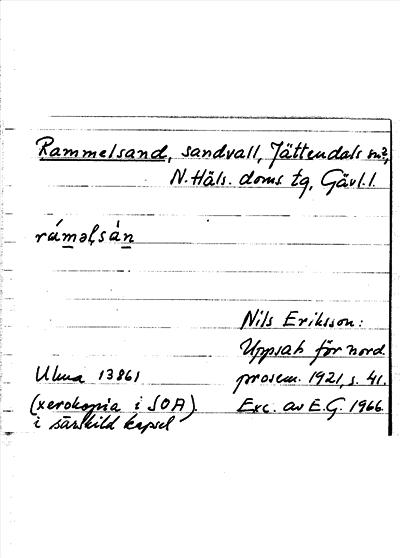 Rammelsand, sandvall, Jättendals sn,
N. Häls. doms tg, Gävl. l.
ráməl̥sán
Nils Eriksson:
Uppsats för nord.
Ulma 13861 prosem. 1921, s. 41.
(xerokopia i SOA) Exc. av E.G. 1966.
i särskild kapsel